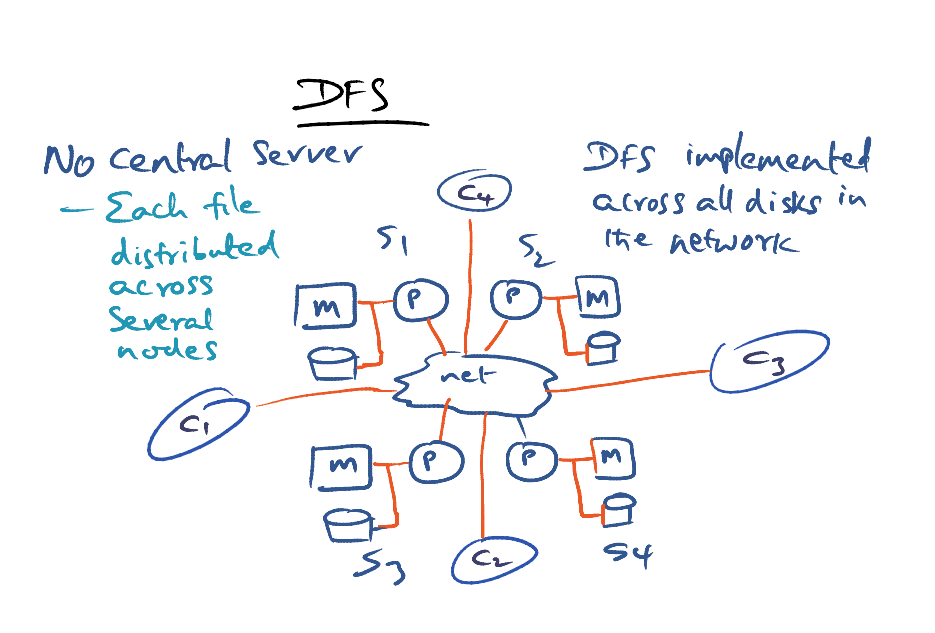 DFS
No Central Server
– Each file
distributed
across
Several
nodes
DFS implemented
across all disks in
the network
C4
S1
S2
M
P
P
M
net
C3
C1
M
P
P
M
S3
C2
S4